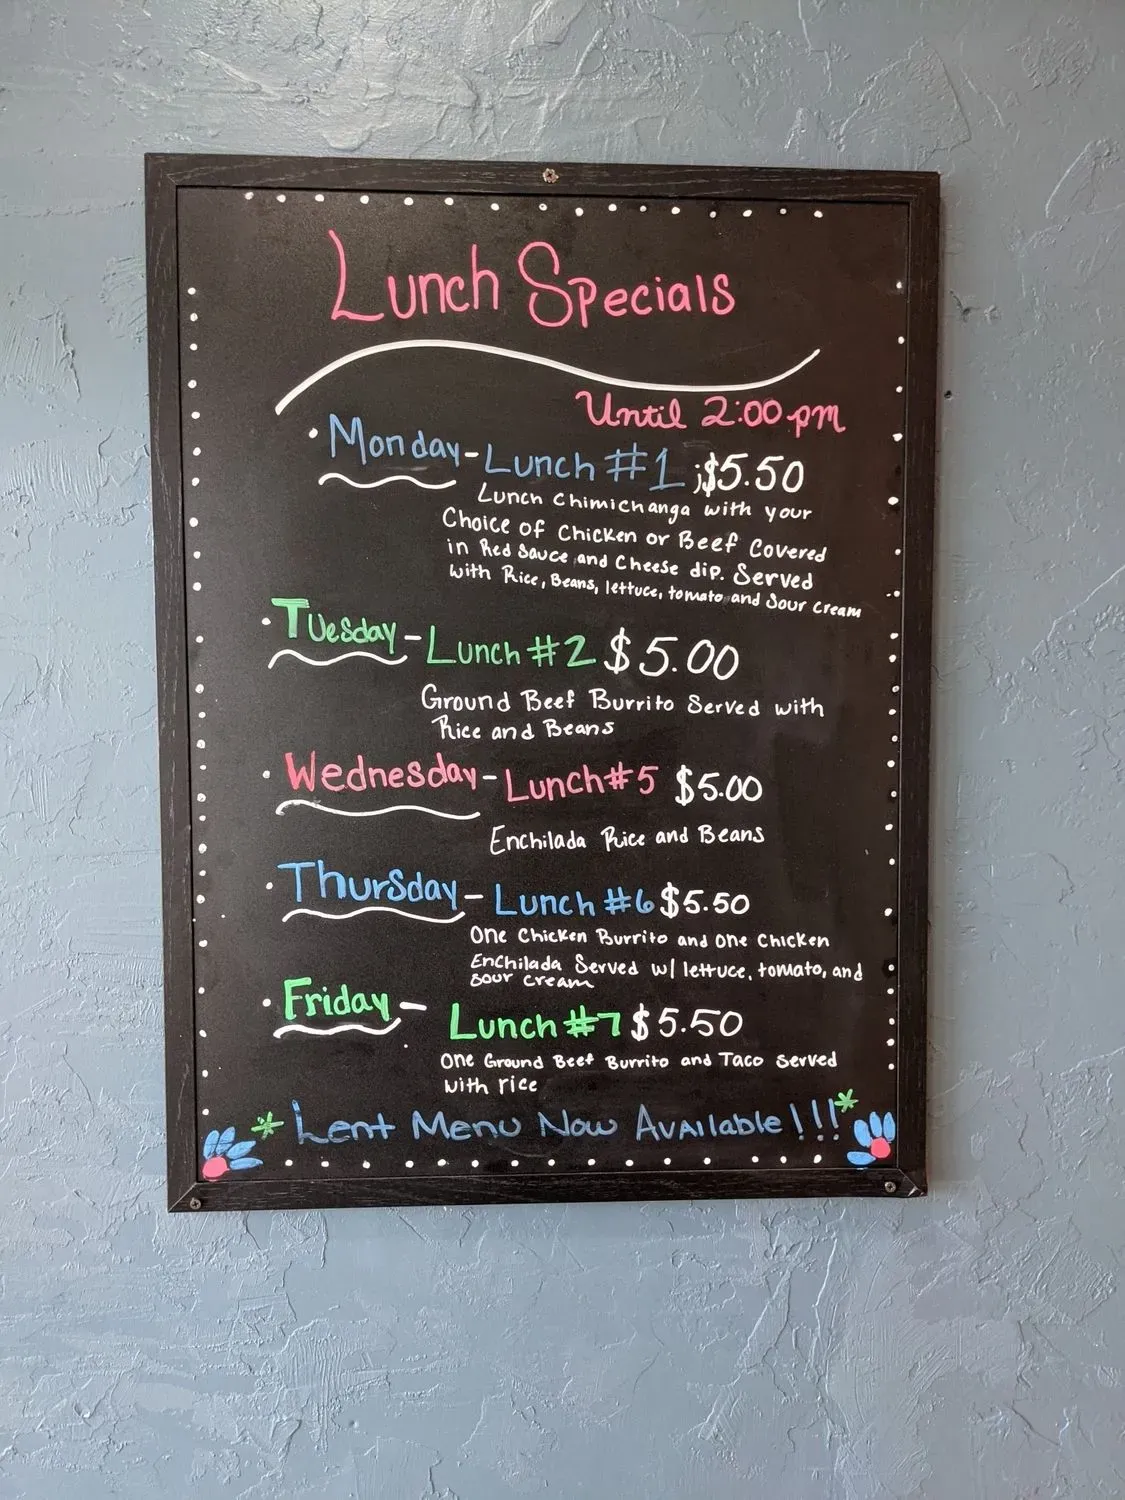 Lunch Specials
Until 2:00 pm
• Monday - Lunch #1 ;$5.50
Lunch Chimichanga with your
Choice of Chicken or Beef Covered
in Red Sauce and Cheese dip. Served
with Rice, Beans, lettuce, tomato and Sour Cream
• Tuesday - Lunch #2 $5.00
Ground Beef Burrito Served with
Rice and Beans
• Wednesday - Lunch #5 $5.00
Enchilada Rice and Beans
• Thursday - Lunch #6 $5.50
One Chicken Burrito and One Chicken
Enchilada Served w/ lettuce, tomato, and
sour cream
• Friday - Lunch #7 $5.50
One Ground Beef Burrito and Taco Served
with rice
* Lent Menu Now Available!!! *